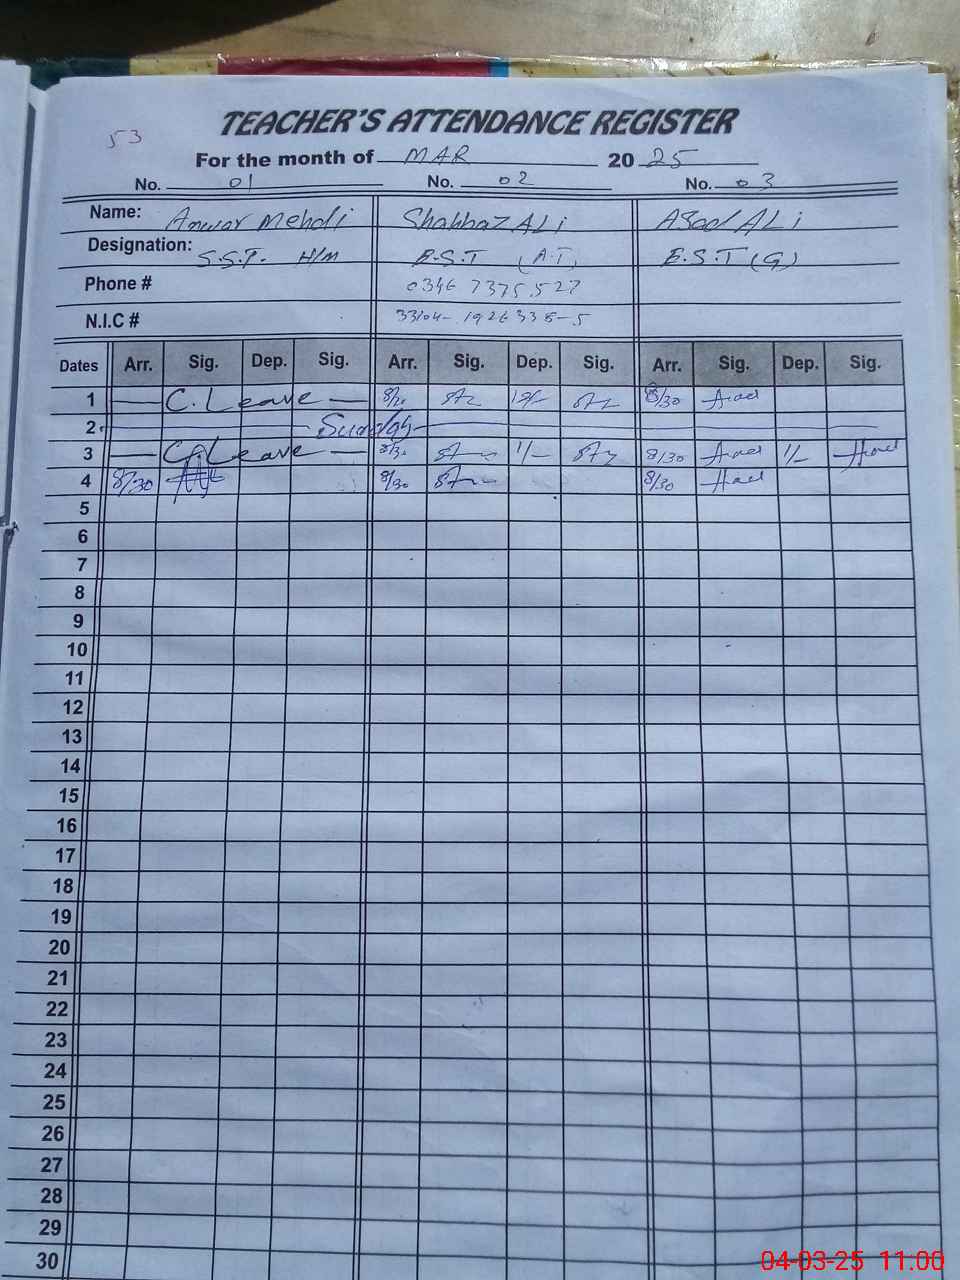 53
TEACHER'S ATTENDANCE REGISTER
For the month of MAR 2025
No. 01 No. 02 No. 03
Name: Anwar Mehdi Shahbaz ALi Asad ALi
Designation: S.S.T. H/M E.S.T (A.T) E.S.T (G)
Phone # 0346 7375527
N.I.C # 33104-1926338-5
Dates Arr. Sig. Dep. Sig. Arr. Sig. Dep. Sig. Arr. Sig. Dep. Sig.
1 C. Leave 8/30
2 Sunday
3 C. Leave 8/30 1/- 8/30 1/-
4 8/30 8/30 8/30
5
6
7
8
9
10
11
12
13
14
15
16
17
18
19
20
21
22
23
24
25
26
27
28
29
30
04-03-25 11.00